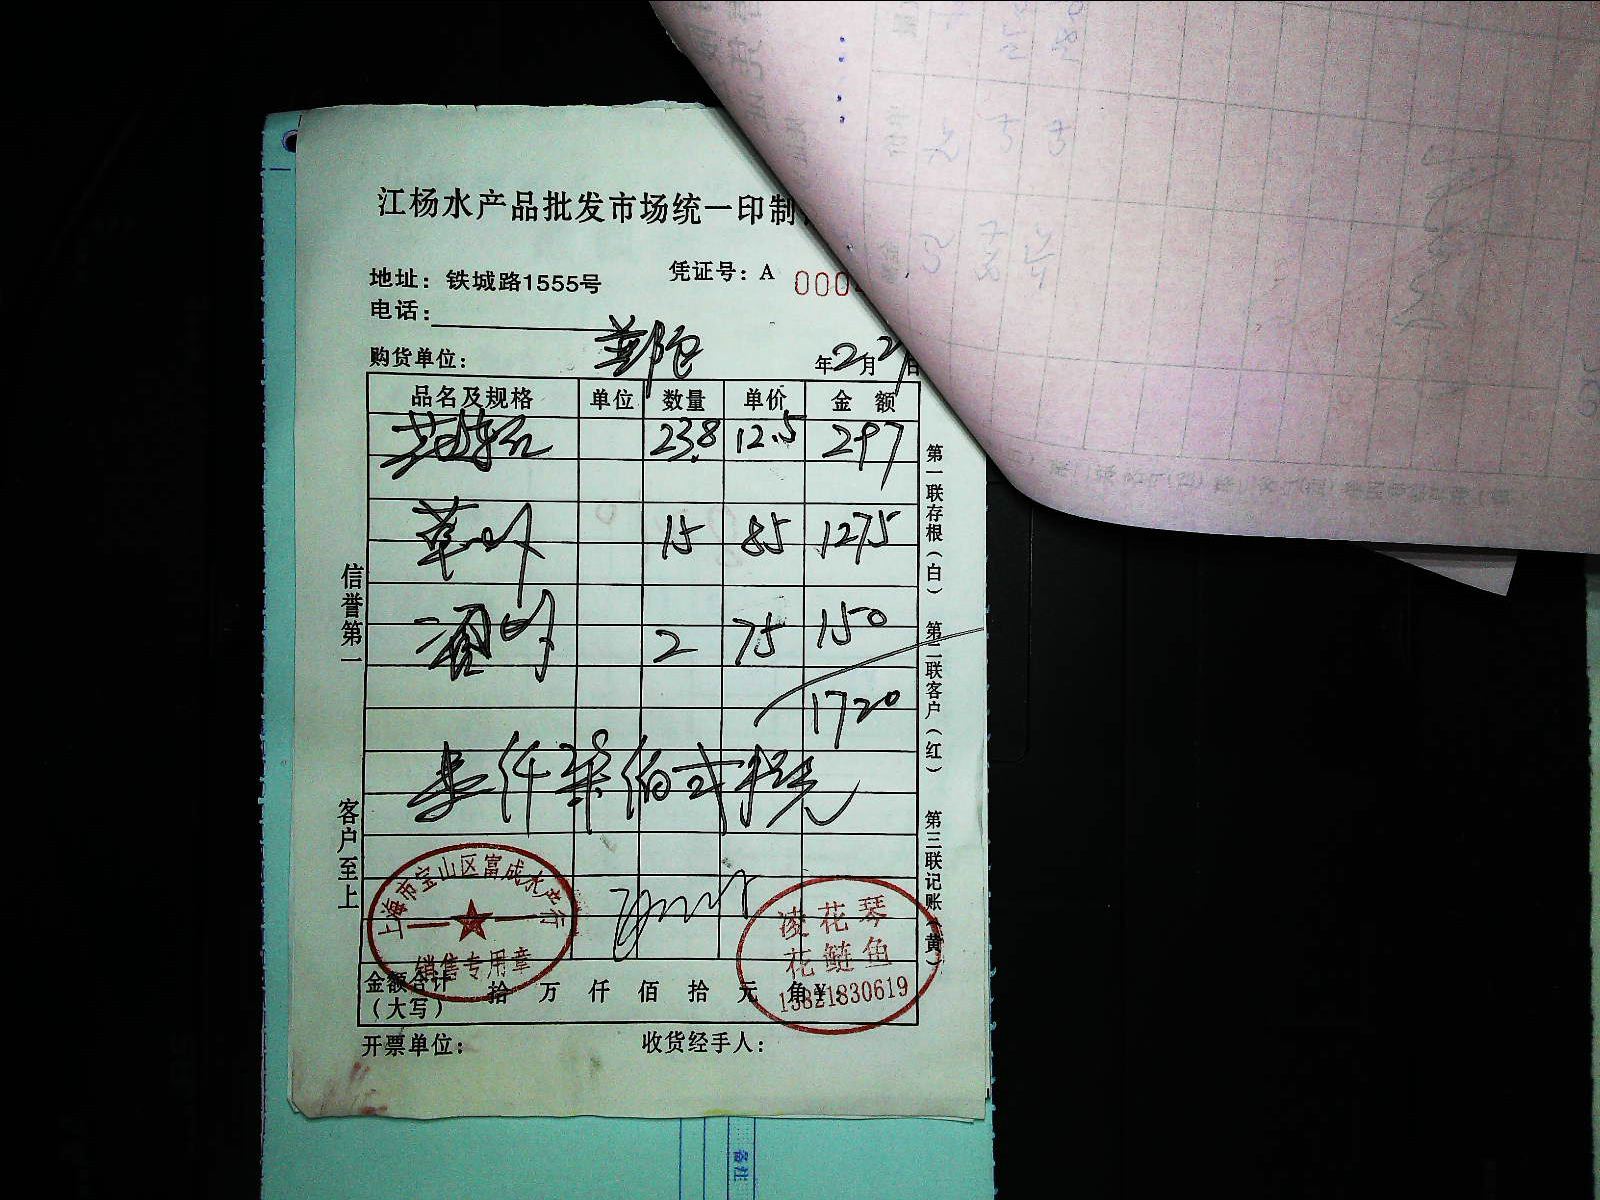 江杨水产品批发市场统一印制
地址：铁城路1555号
凭证号：A 000
电话：
购货单位：
年2月2日
品名及规格 单位 数量 单价 金 额
23.8 12.5 297
草 15 85 1275
2 75 150
1720
壹仟柒佰弍拾元
信誉第一
客户至上
第一联存根（白） 第二联客户（红） 第三联记账（黄）
上海市宝山区富成水产行
销售专用章
凌花琴
花鲢鱼
13821830619
金额合计
（大写） 拾 万 仟 佰 拾 元 角 ¥：
开票单位： 收货经手人：
备注